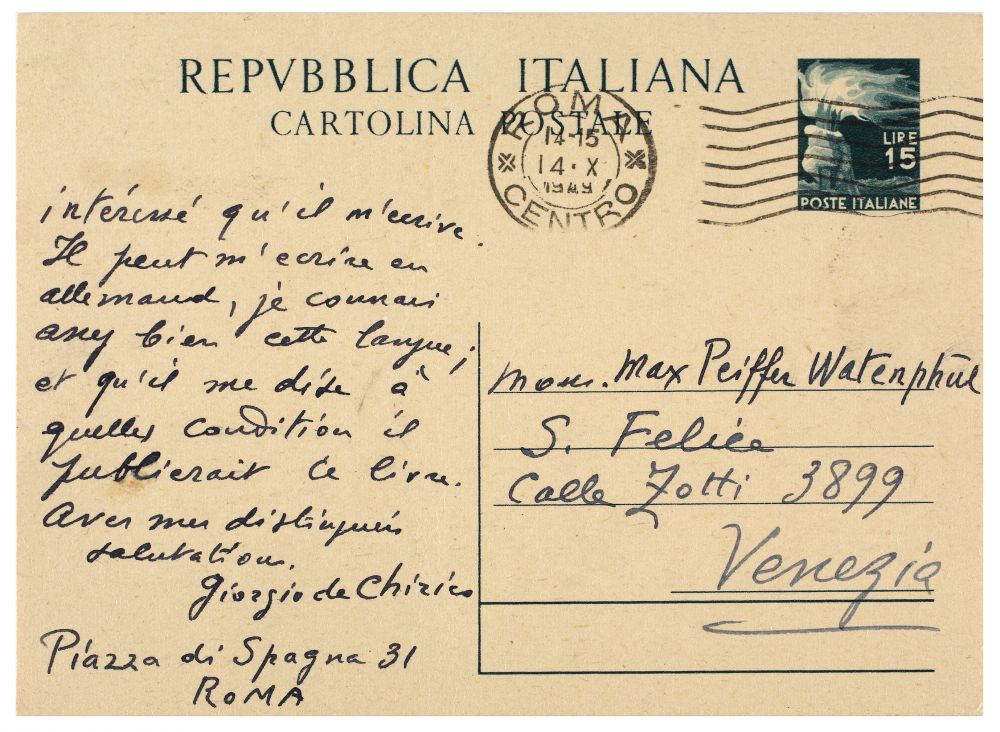 REPVBBLICA ITALIANA
CARTOLINA POSTALE
ROMA
14-15
14·X
1949
CENTRO
LIRE
15
POSTE ITALIANE
intéressé qu'il m'écrive.
Il peut m'ecrire en
allemand, je connais
assez bien cette langue;
et qu'il me dise à
quelles condition il
publierait ce livre.
Avec mes distingués
salutations.
Giorgio de Chirico
Piazza di Spagna 31
ROMA
Mons. Max Peiffer Watenphül
S. Felice
Calle Zotti 3899
Venezia